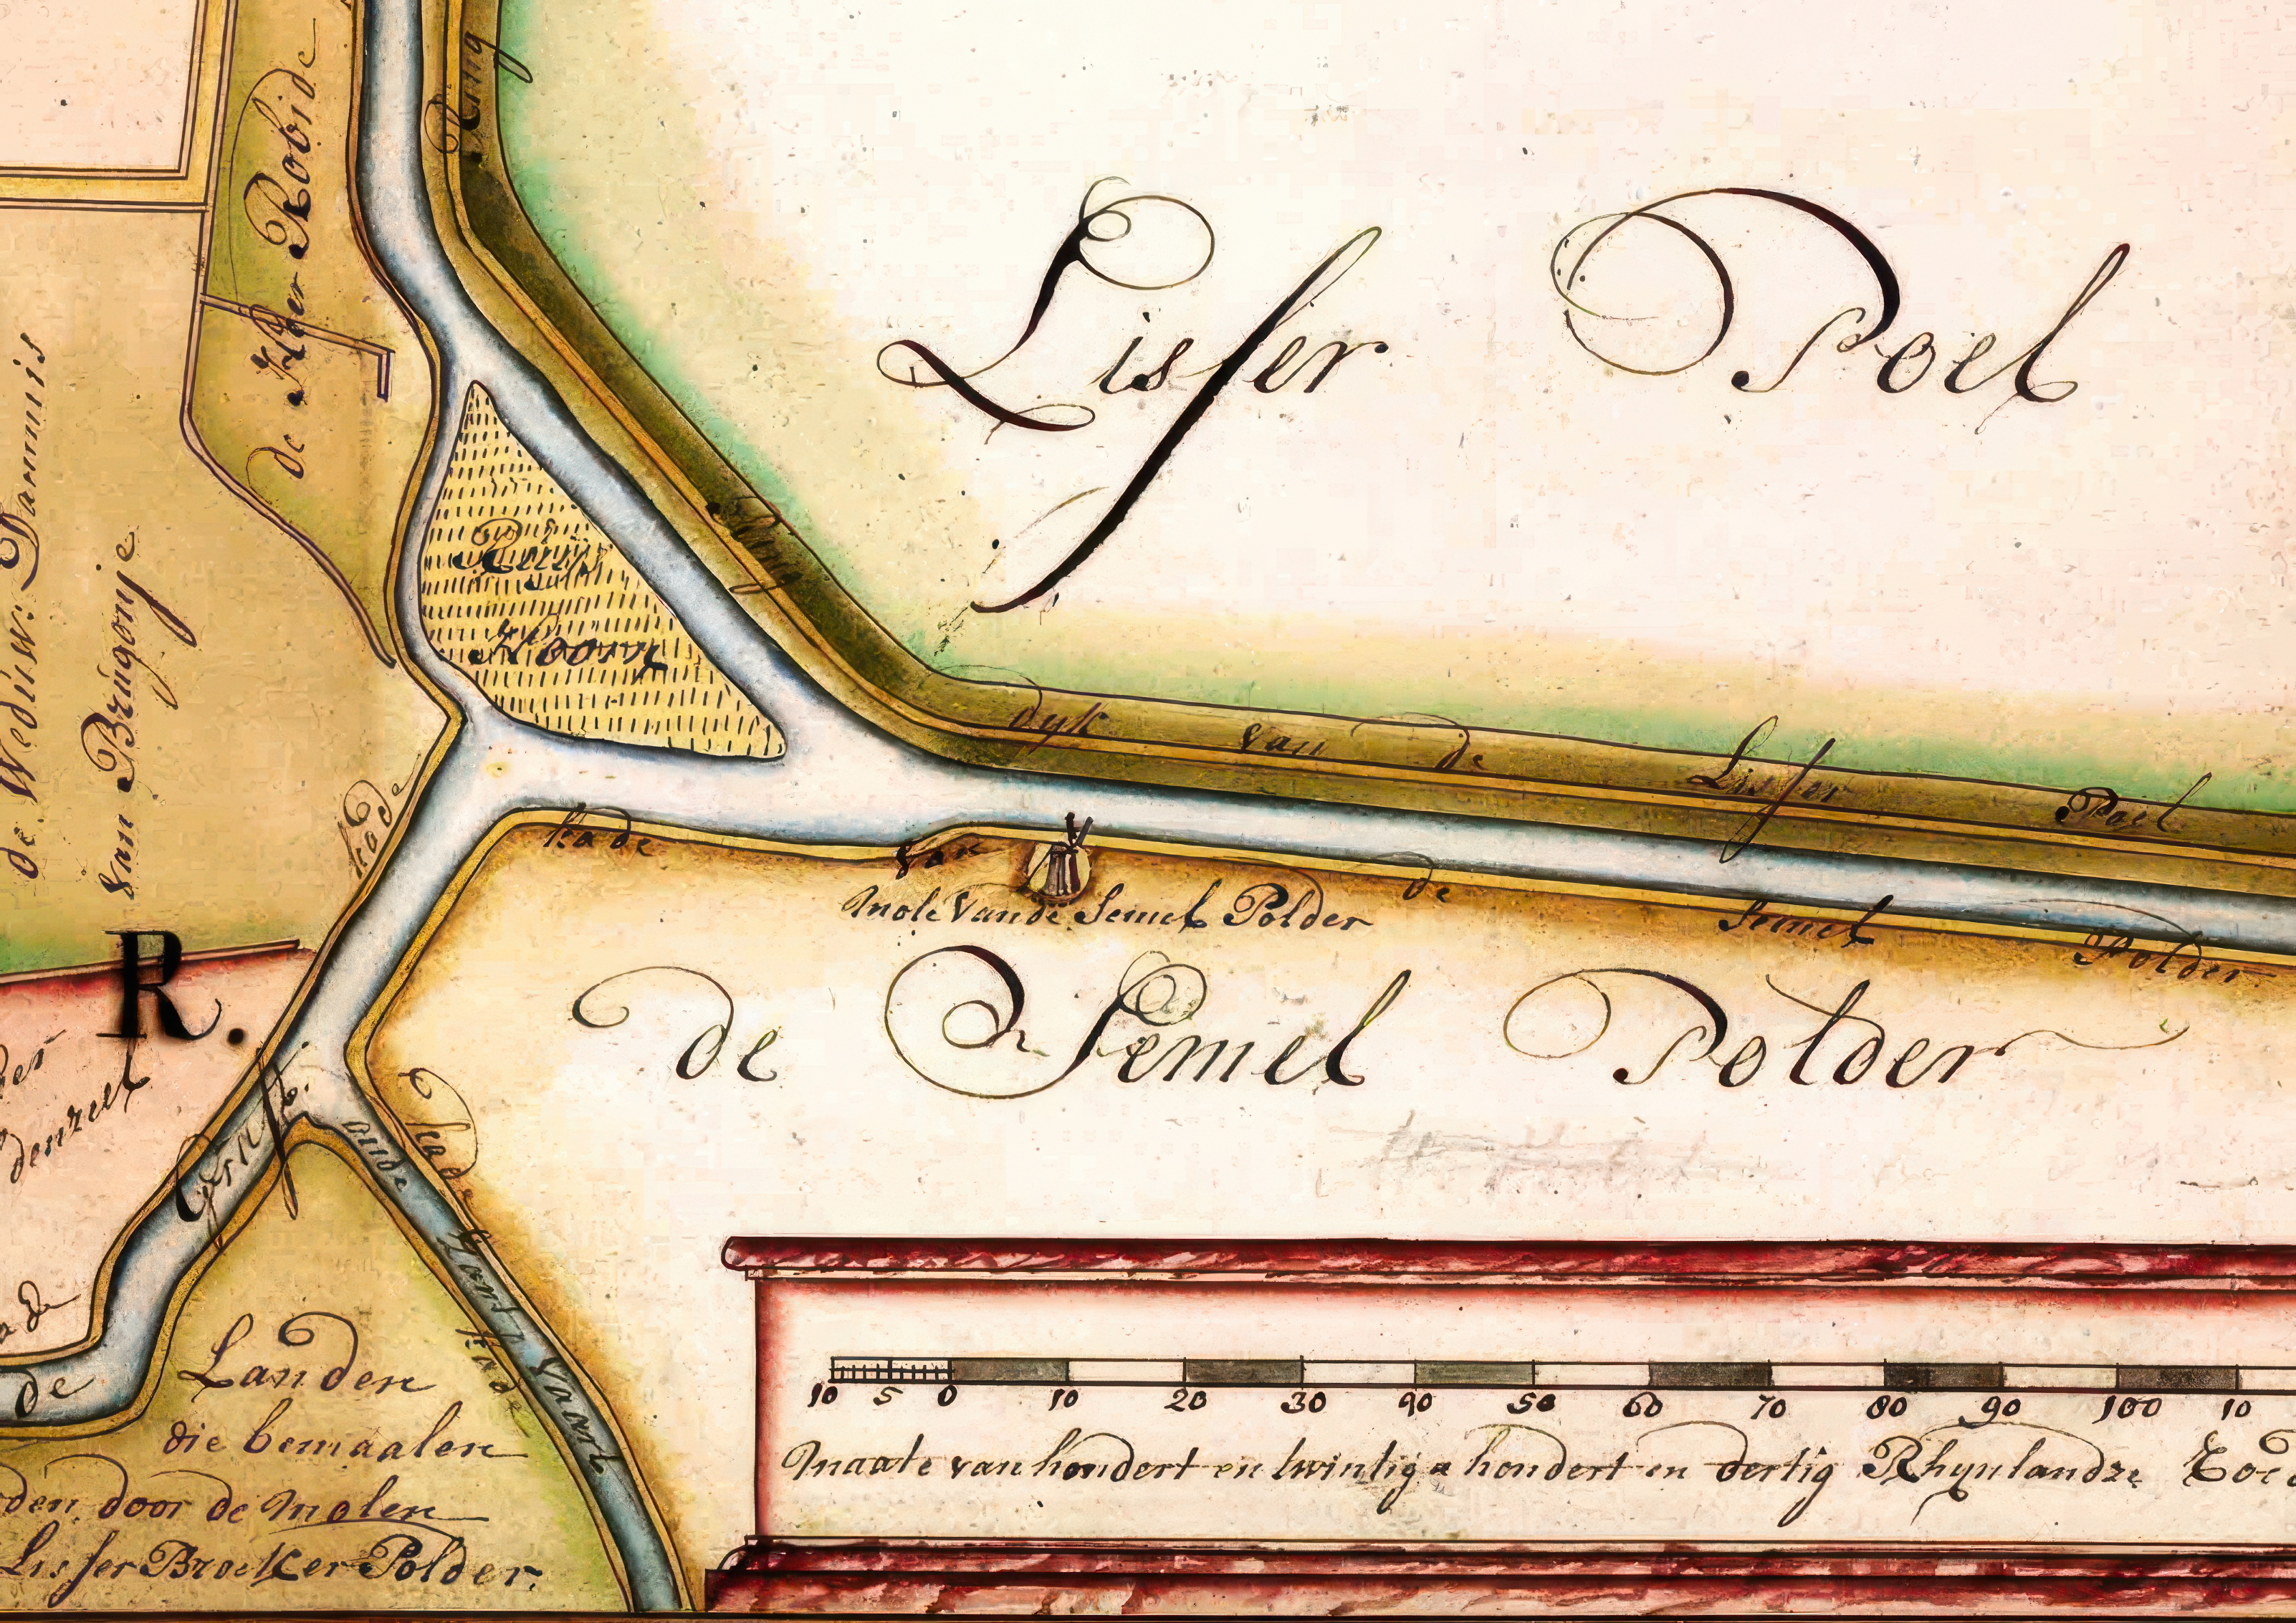 Ring
de Heer Robide
Lisser Poel
de Weduw: Dammis
van Brugonje
Ring
Hoorn
dyk van de Lisser Poel
kade
kade van de Semel Polder
Mole Vande Semel Polder
R.
de Semel Polder
denzeel
kade
oude
Zant
Vaart
kade
de
Landen
die bemaalen
den door de Molen
Lisser Broeker Polder.
10 5 0 10 20 30 40 50 60 70 80 90 100 10
Maate van hondert en twintig a hondert en dertig Rhynlandze